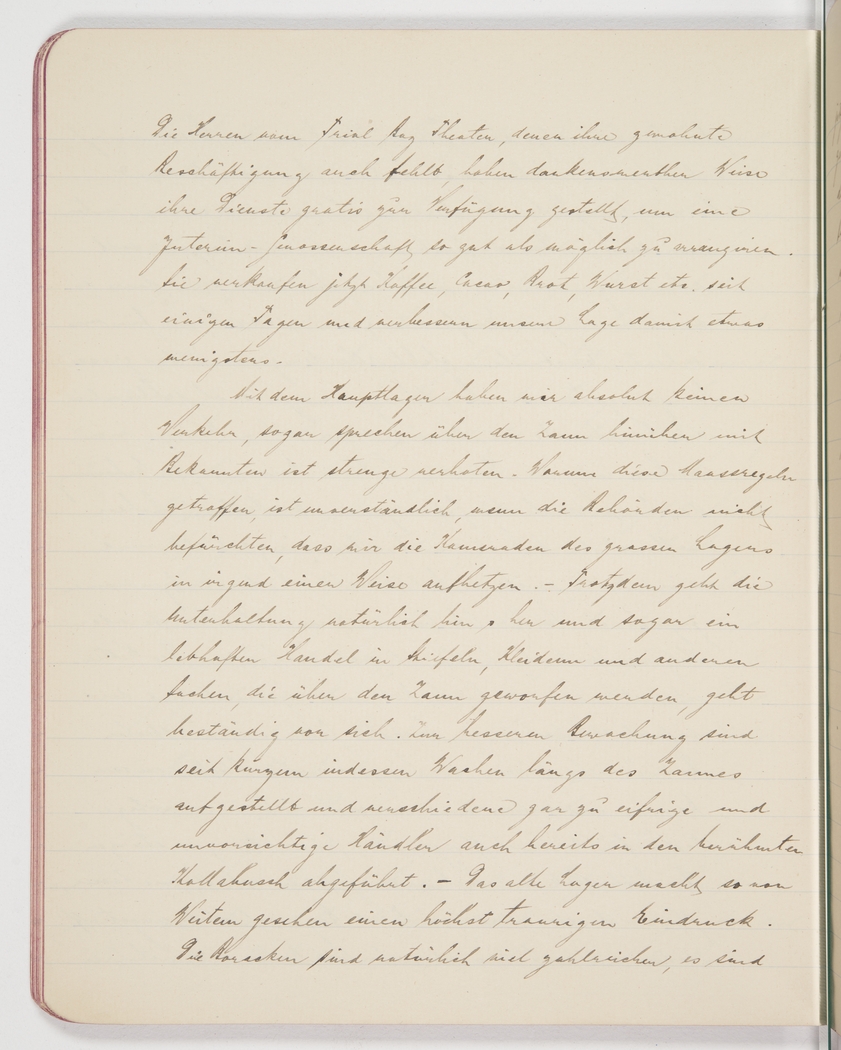 Die Herren vom Trial Bay Theater, denen ihre gewohnte
Beschäftigung auch fehlt, haben dankenswerther Weise
ihre Dienste gratis zur Verfügung gestellt, um eine
Interim-Genossenschaft so gut als möglich zu arrangiren.
Sie verkaufen jetzt Kaffee, Cacao, Brot, Wurst etc. seit
einigen Tagen und verbessern unsere Lage damit etwas
wenigstens.
Mit dem Hauptlager haben wir absolut keinen
Verkehr, sogar sprechen über den Zaun hinüber mit
Bekannten ist strenge verboten. Warum diese Maassregeln
getroffen, ist unverständlich, wenn die Behörden nicht
befürchten, dass wir die Kameraden des grossen Lagers
in irgend einer Weise aufhetzen. – Trotzdem geht die
Unterhaltung natürlich hin & her und sogar ein
lebhafter Handel in Stiefeln, Kleidern und anderen
Sachen, die über den Zaun geworfen werden, geht
beständig vor sich. Zur besseren Bewachung sind
seit kurzem indessen Wachen längs des Zaunes
aufgestellt und verschiedene gar zu eifrige und
unvorsichtige Händler auch bereits in den berühmten
Kallabusch abgeführt. – Das alte Lager macht so von
Weitem gesehen einen höchst traurigen Eindruck.
Die Baracken sind natürlich viel zahlreicher, es sind